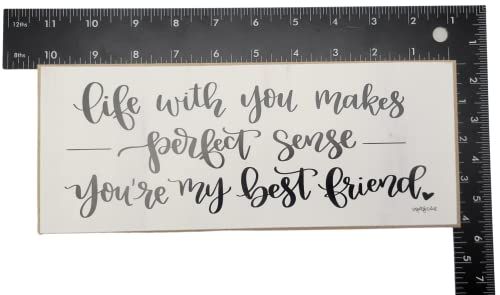 12ths 11 10 9 8 7 6 5 4 3 2 1
8ths 10 9 8 7 6 5 4 3 2 1
life with you makes
perfect sense
you're my best friend
1
2
3
4
5
6
7